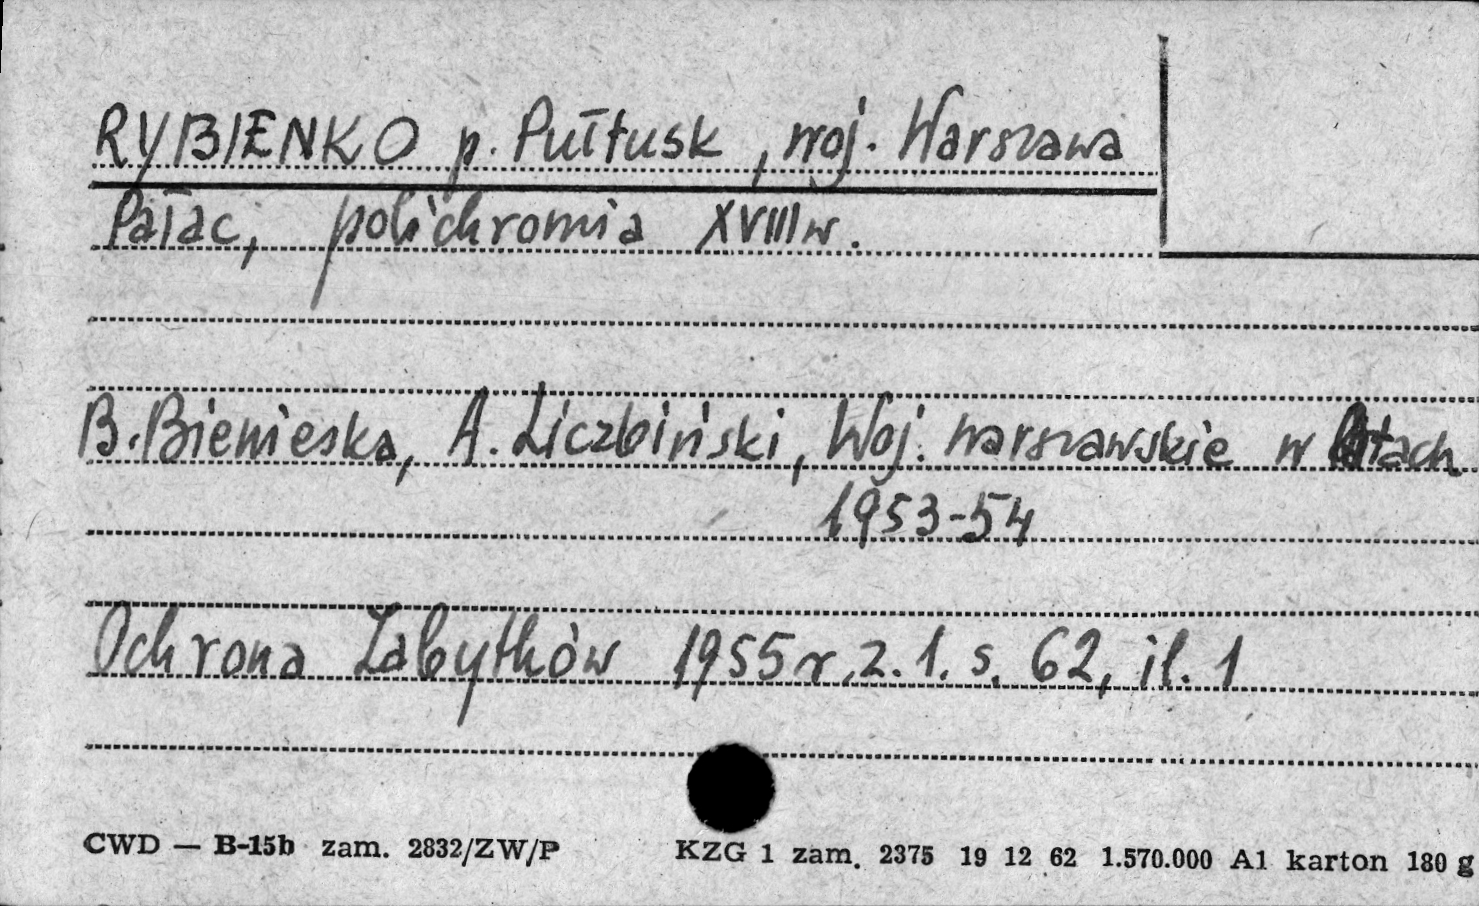 RYBIENKO p. Pułtusk, woj. Warszawa
Pałac, polichromia XVIII w.
B. Bienieska, A. Liczbiński, Woj. warszawskie w latach
1953-54
Ochrona Zabytków 1955 r. z. 1. s. 62, il. 1
CWD — B-15b zam. 2832/ZW/P KZG 1 zam. 2375 19 12 62 1.570.000 A1 karton 180 g